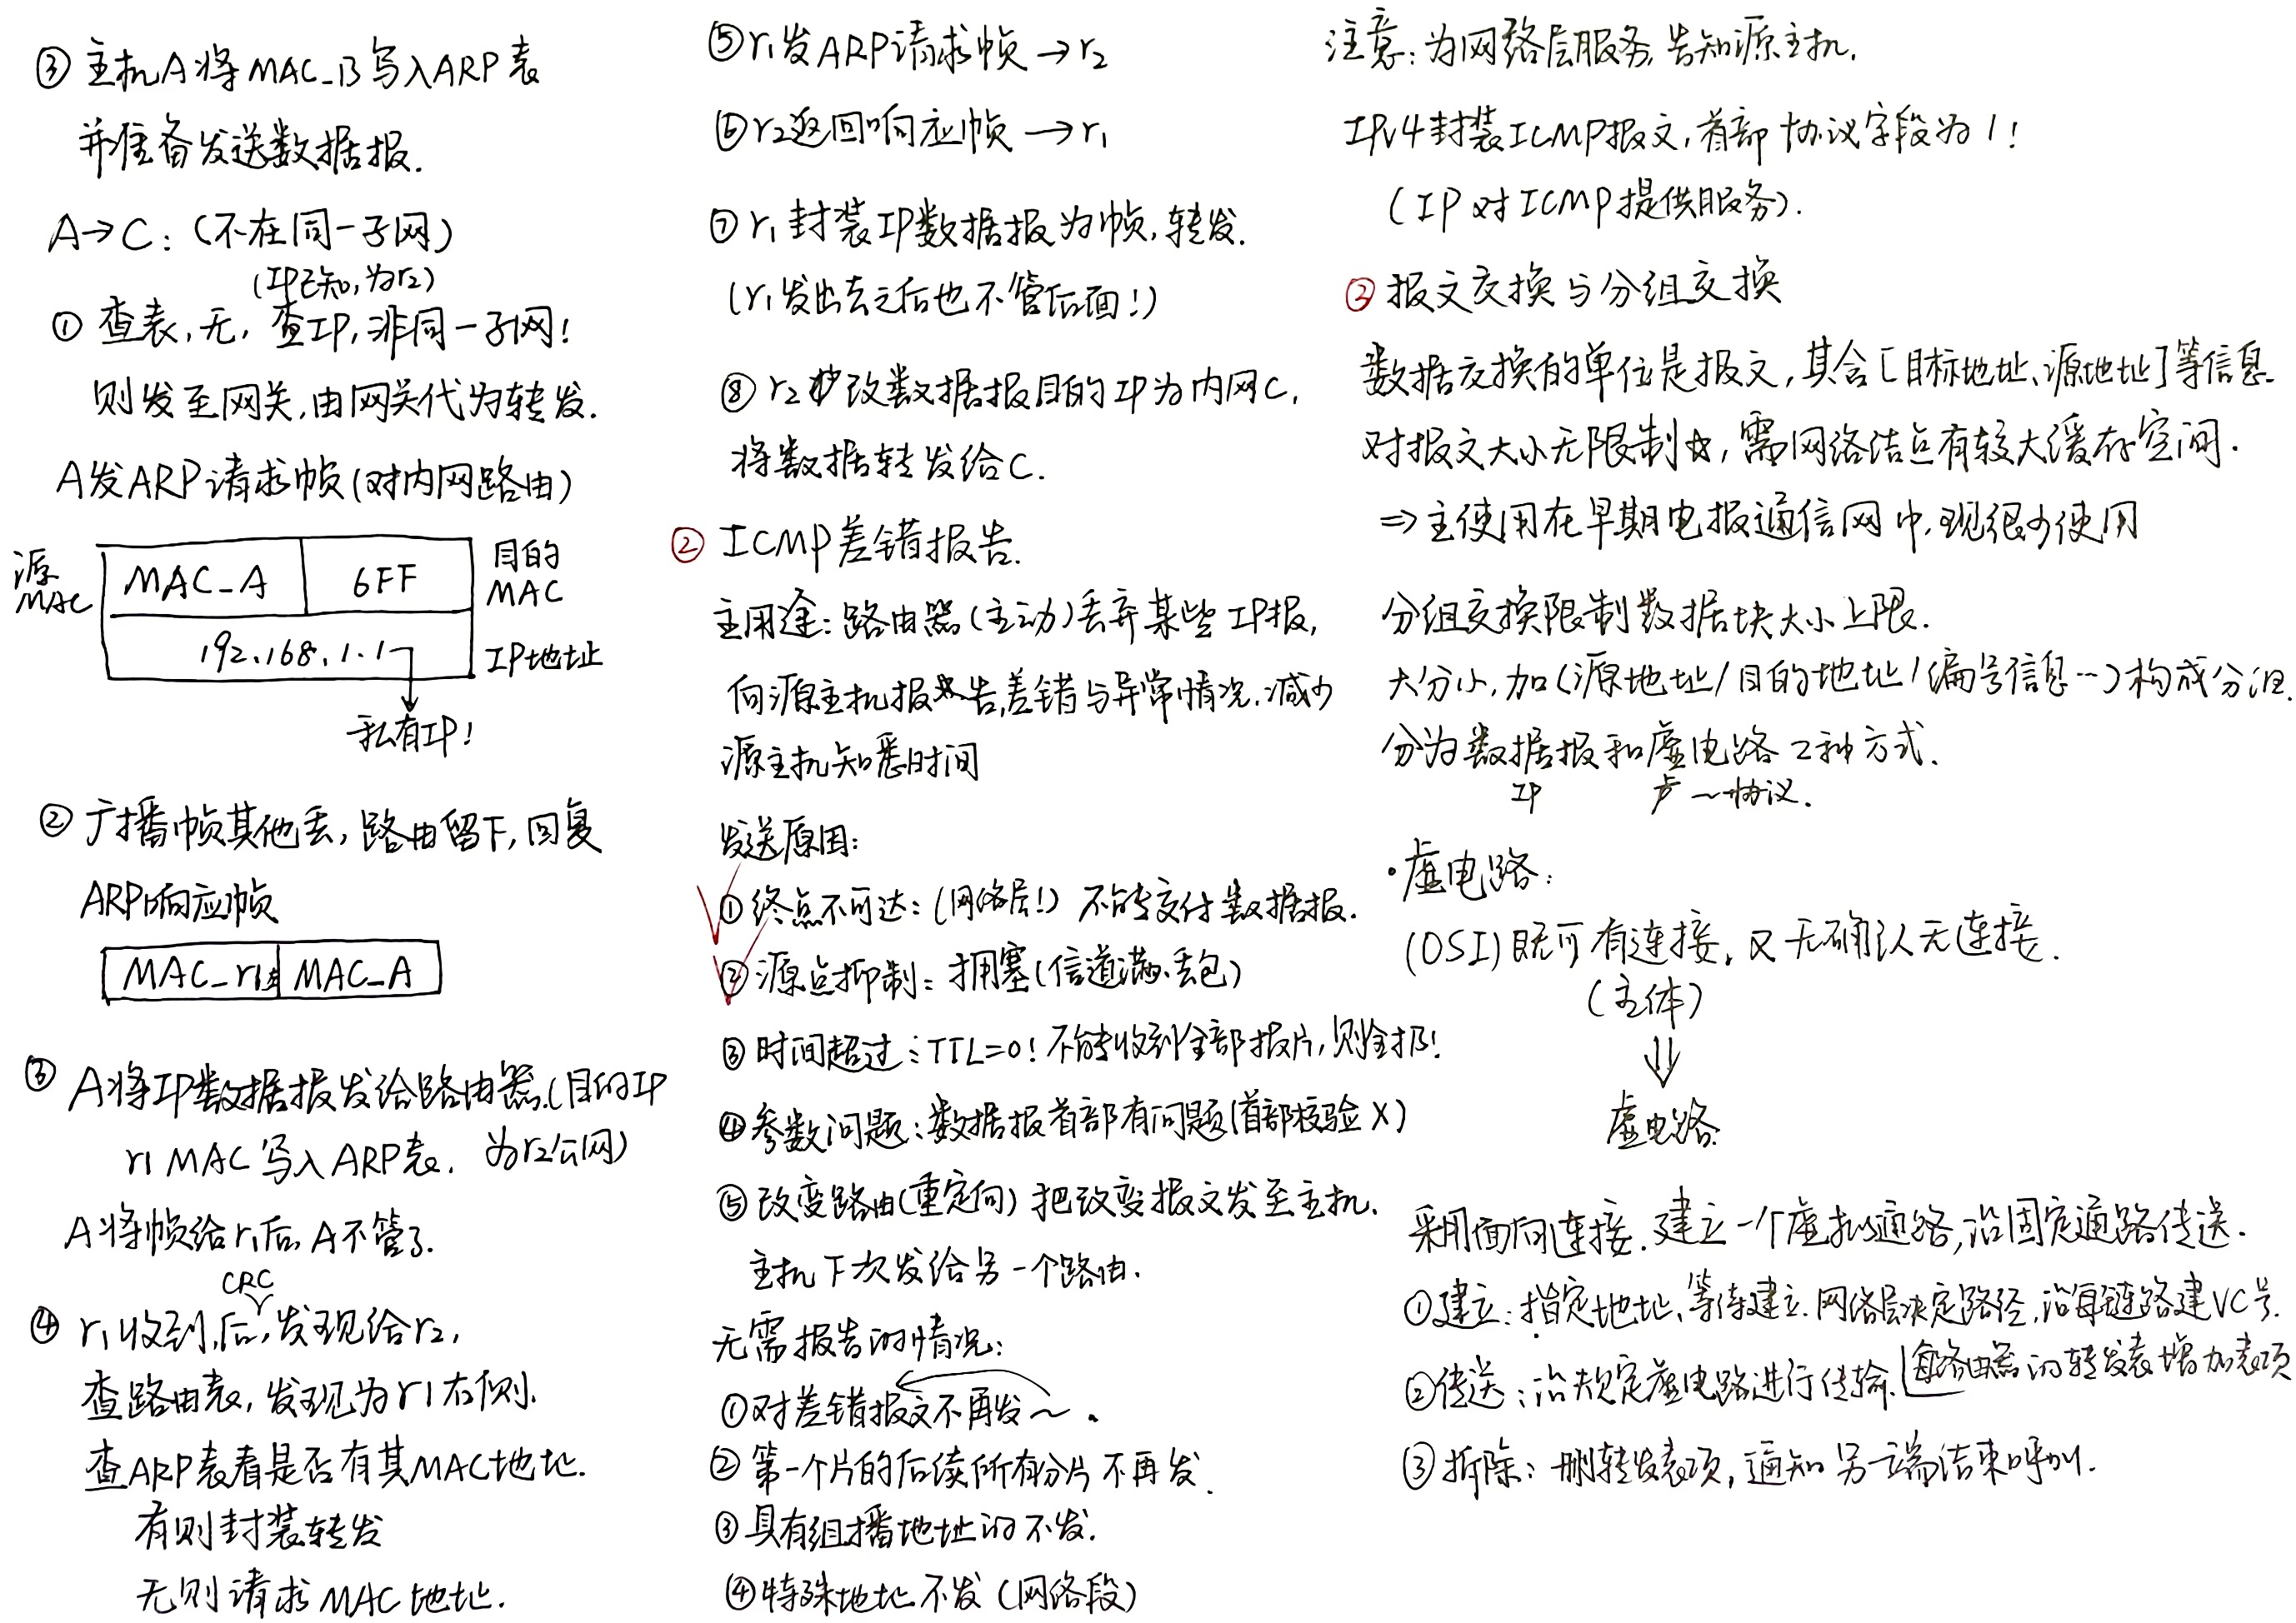 ③ 主机A将MAC_B写入ARP表
并准备发送数据报.
A→C:(不在同一子网)
(IP已知,为r2)
① 查表,无,查IP,非同一子网!
则发至网关,由网关代为转发.
A发ARP请求帧(对内网路由)
源MAC
MAC_A
6FF
目的MAC
192.168.1.1
IP地址
私有IP!
② 广播帧其他丢,路由留下,回复
ARP响应帧
MAC_r1
MAC_A
③ A将IP数据报发给路由器.(目的IP
r1 MAC写入ARP表. 为r2公网)
A将帧给r1后,A不管了.
CRC
④ r1收到后,发现给r2,
查路由表,发现为r1右侧.
查ARP表看是否有其MAC地址.
有则封装转发
无则请求MAC地址.
⑤r1发ARP请求帧→r2
⑥r2返回响应帧→r1
⑦r1封装IP数据报为帧,转发.
(r1发出去之后也不管后面!)
⑧ r2改数据报目的IP为内网C,
将数据转发给C.
② ICMP差错报告.
主用途:路由器(主动)丢弃某些IP报,
向源主机报告差错与异常情况.减少
源主机知悉时间
发送原因:
①终点不可达:(网络层!) 不能交付数据报.
②源点抑制:拥塞(信道满、丢包)
③时间超过:TTL=0!不能收到全部报片,则全扔!
④参数问题:数据报首部有问题(首部校验X)
⑤改变路由(重定向) 把改变报文发至主机.
主机下次发给另一个路由.
无需报告的情况:
①对差错报文不再发~.
②第一个片的后续所有分片不再发.
③具有组播地址的不发.
④特殊地址不发(网络段)
注意:为网络层服务,告知源主机.
IPv4封装ICMP报文,首部协议字段为1!
(IP对ICMP提供服务).
③报文交换与分组交换
数据交换的单位是报文,其含[目标地址、源地址]等信息.
对报文大小无限制,需网络结点有较大缓存空间.
⇒主使用在早期电报通信网中,现很少使用
分组交换限制数据块大小上限.
大分小,加(源地址/目的地址/编号信息…)构成分组.
分为数据报和虚电路2种方式.
IP ~协议.
·虚电路:
(OSI)既可有连接,又无确认无连接.
(主体)
⇓
虚电路
采用面向连接.建立一个虚拟通路,沿固定通路传送.
①建立:指定地址、等待建立.网络层决定路径,沿每链路建VC号.
每路由器的转发表增加表项
②传送:沿规定虚电路进行传输.
③拆除:删转发表项,通知另一端结束呼叫.